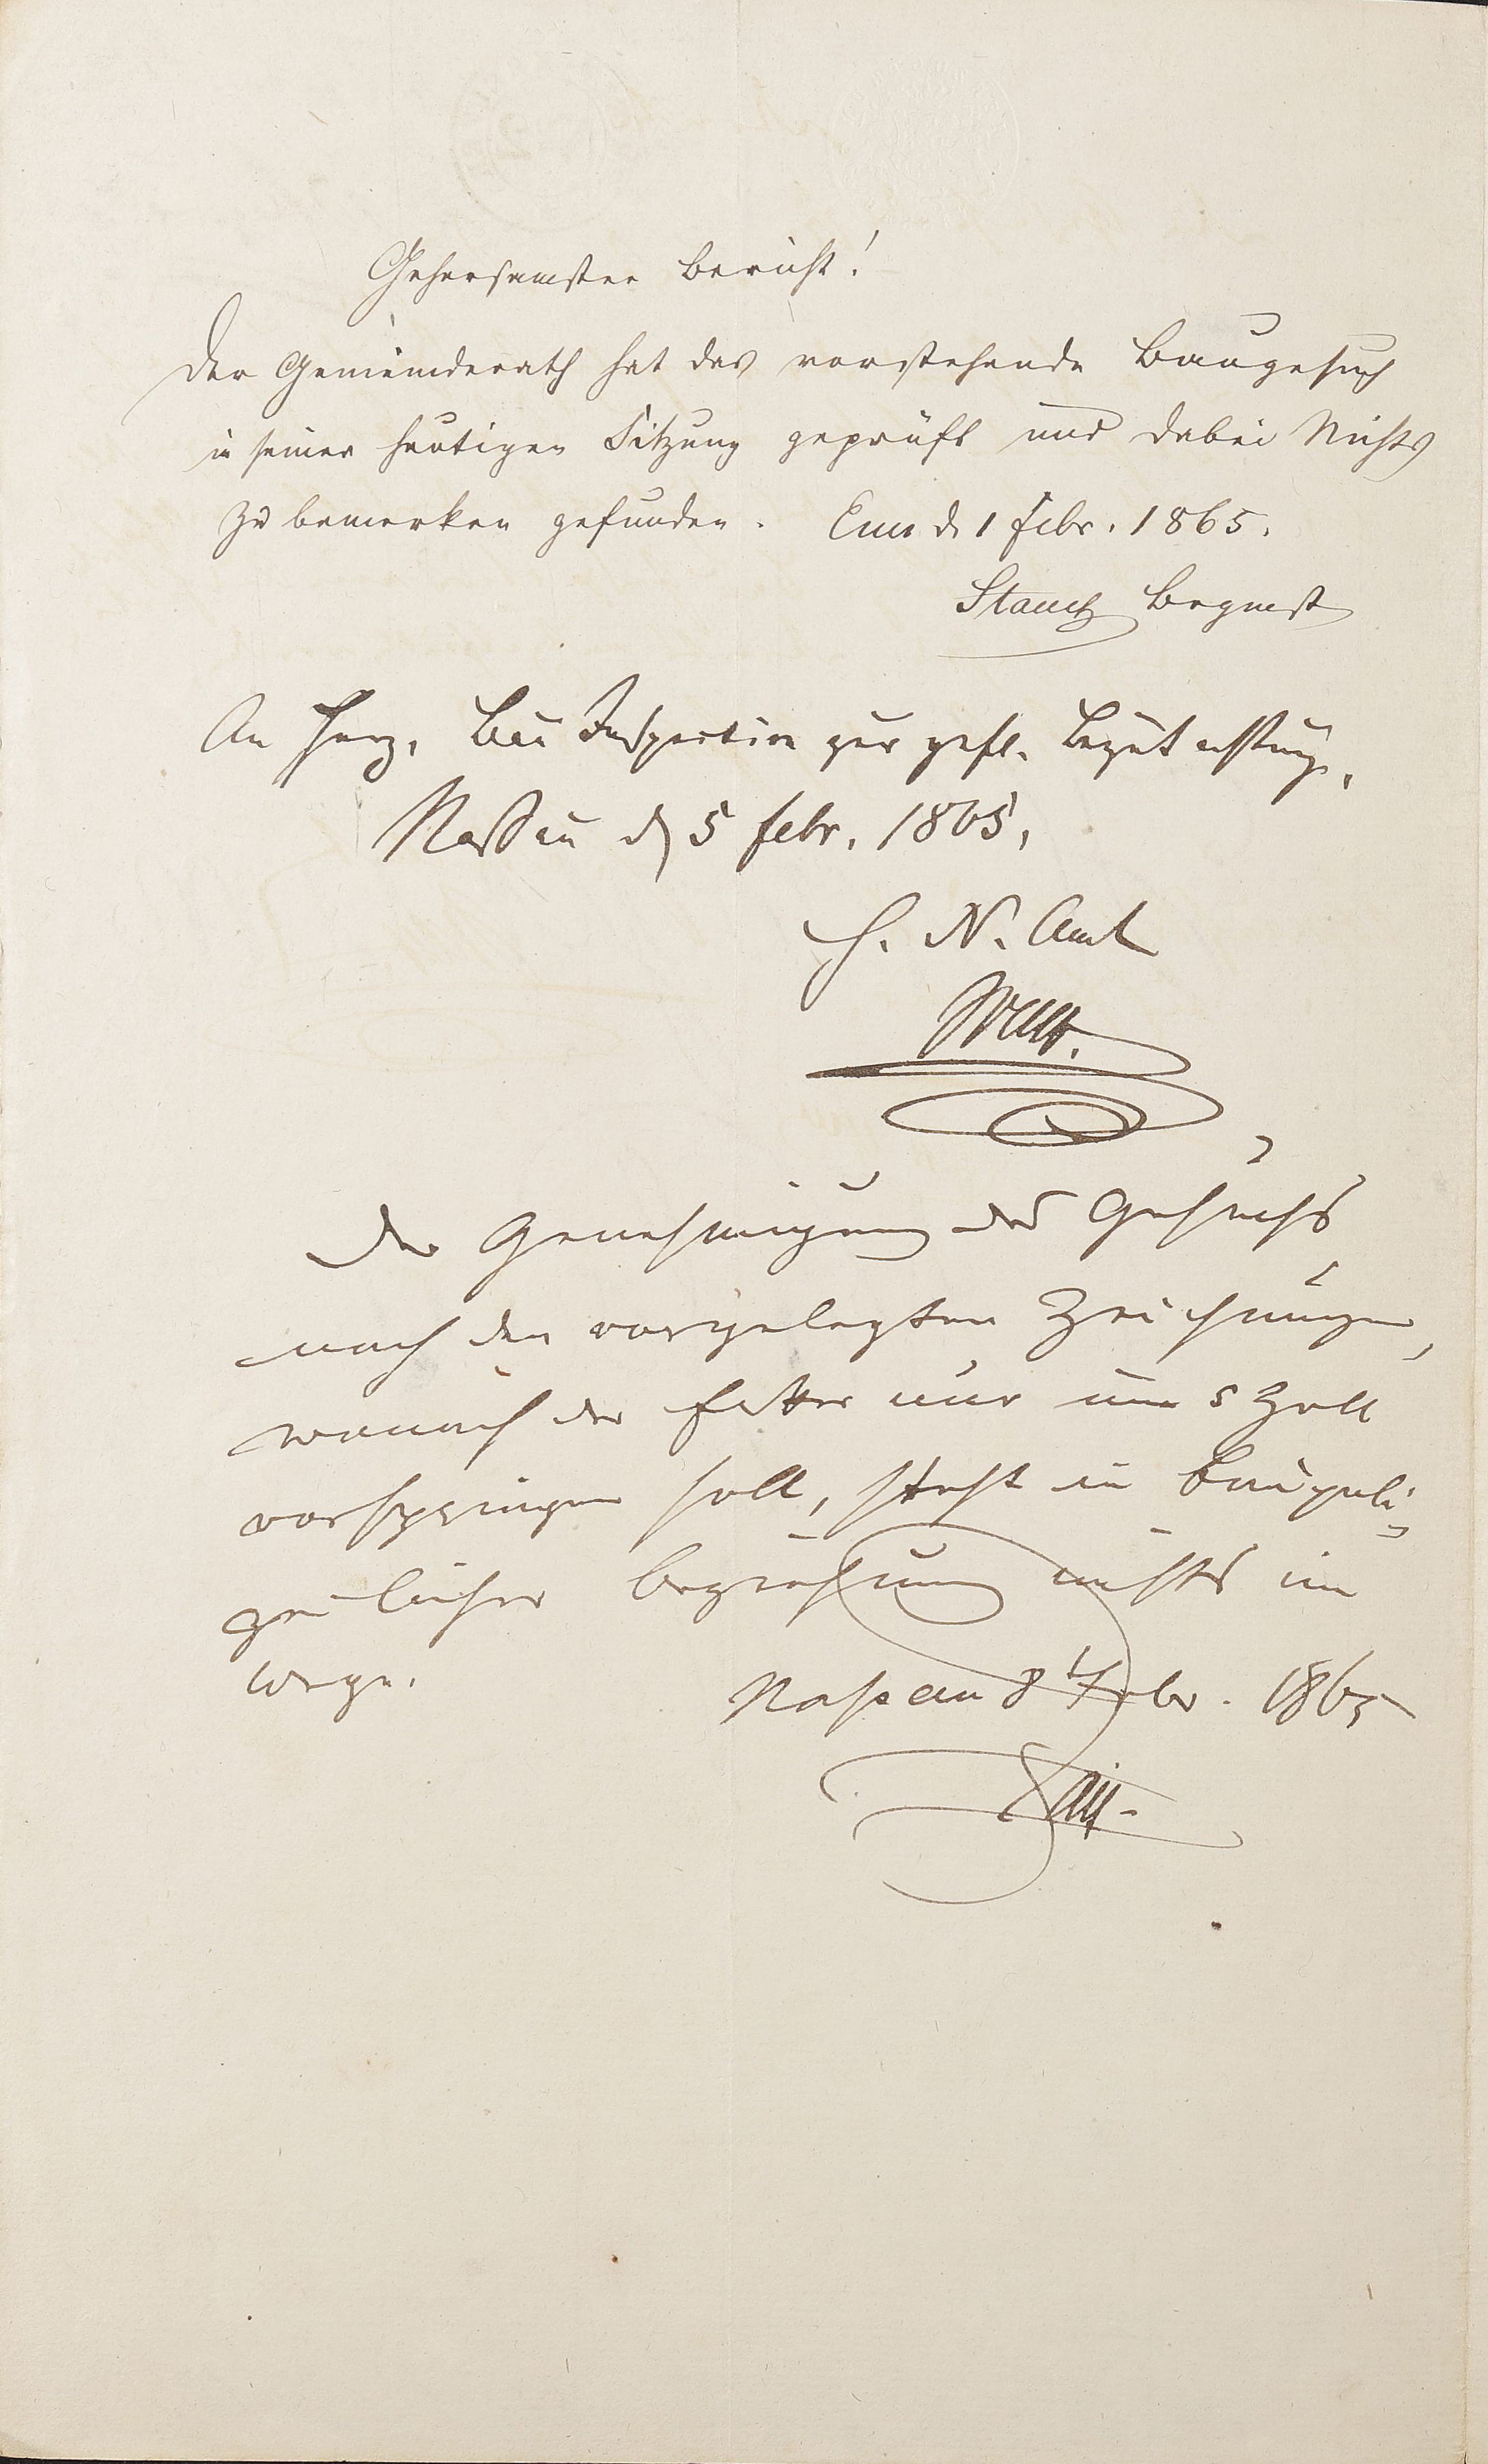 Gehorsamster Bericht!
Der Gemeinderath hat das vorstehende Baugesuch
in seiner heutigen Sitzung geprüft und dabei Nichts
zu bemerken gefunden. Ems d. 1 Febr. 1865.
Bgmstr
An Herz. Bau Inspection zur gefl. Begutachtung.
Nassau d 5 Febr. 1865.
H. N. Amt
Der Genehmigung des Gesuchs
nach den vorgelegten Zeichnungen,
wonach der nur um 5 Zoll
vorspringen soll, steht in baupoli-
zeilicher Beziehung nichts im
Wege.
Nassau 8t Febr. 1865